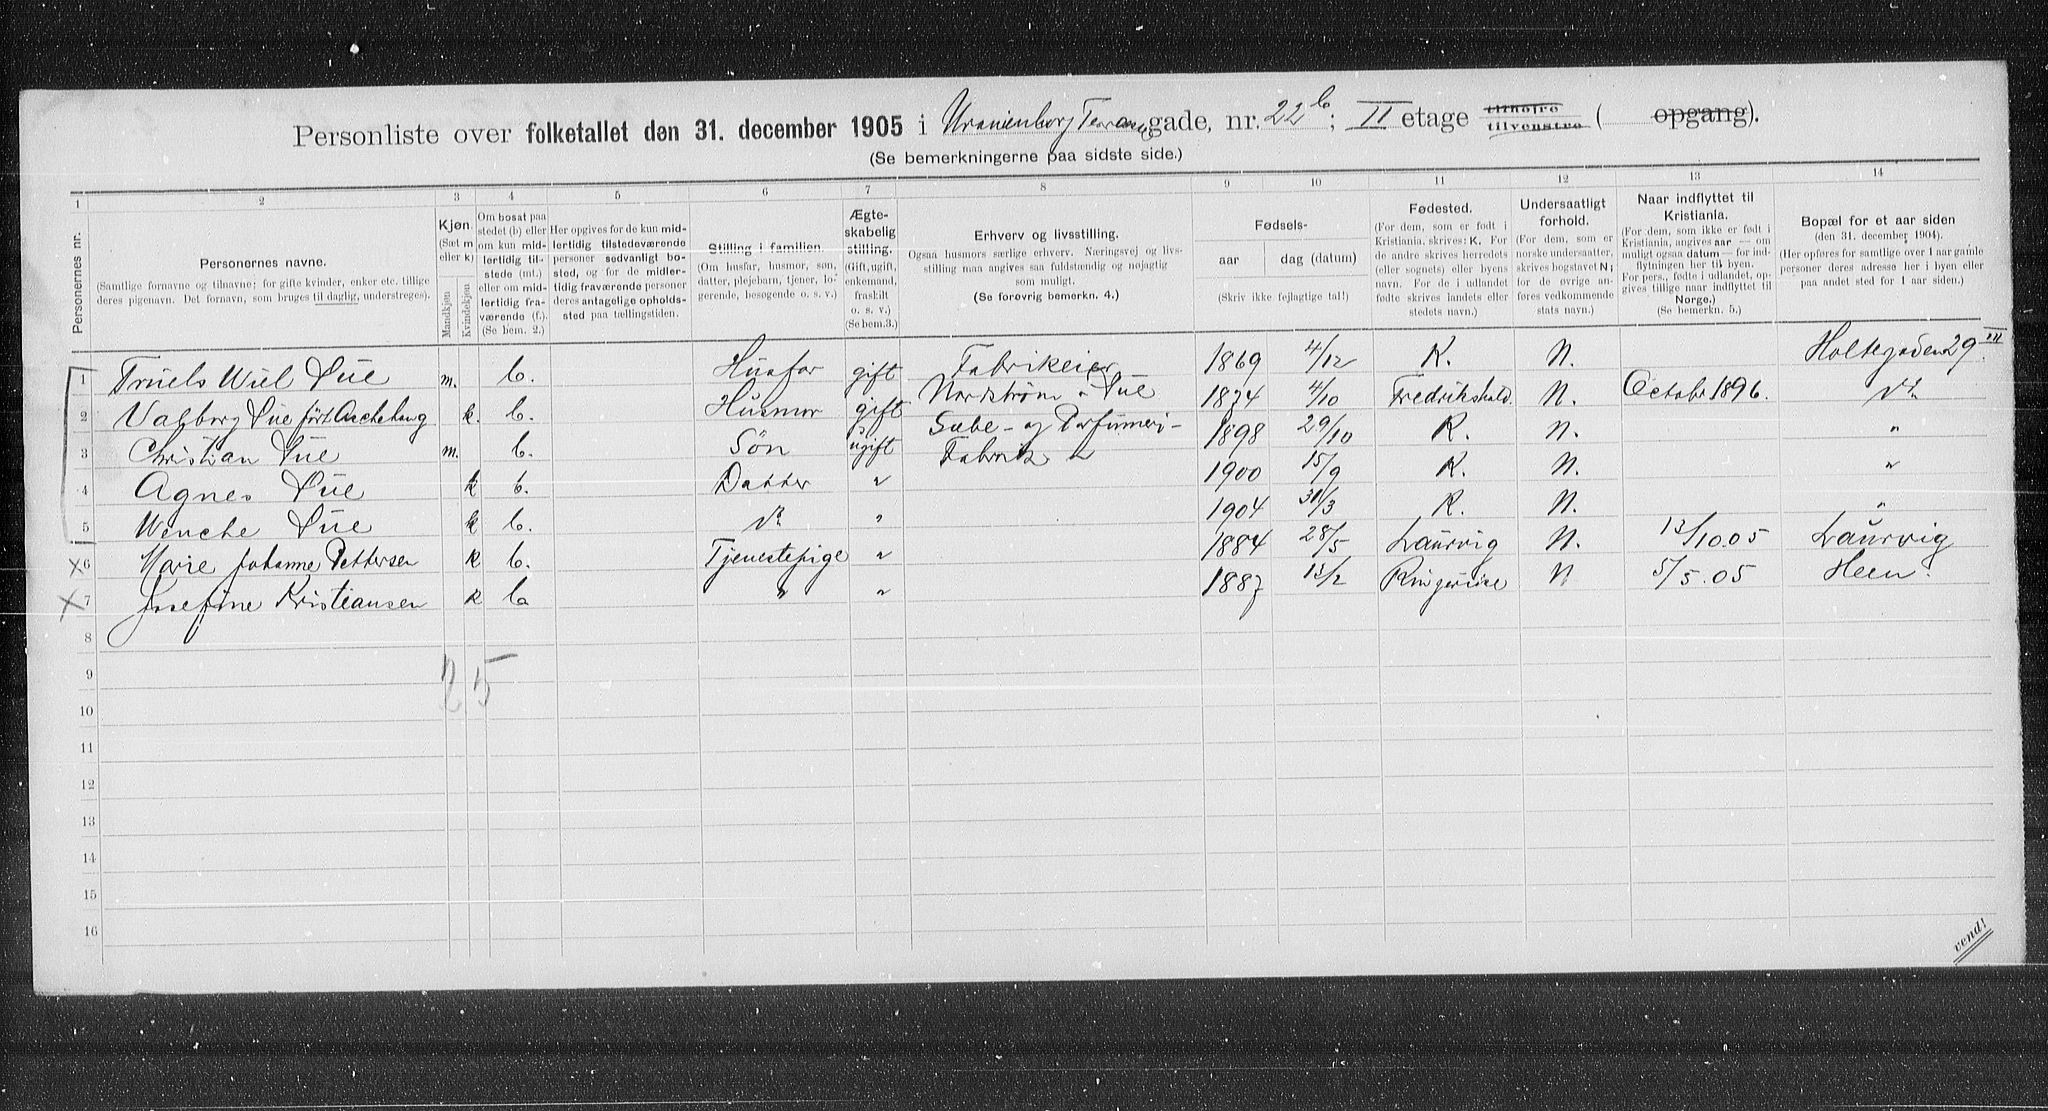 Personliste over folketallet den 31. december 1905 i Uranienborg Terrasse gade, nr. 22 b; II etage tilhøjre tilvenstre ( opgang).
(Se bemerkningerne paa sidste side.)
1 2 3 4 5 6 7 8 9 10 11 12 13 14
Personernes nr.
Personernes navne.
(Samtlige fornavne og tilnavne; for gifte kvinder, enker etc. tillige
deres pigenavn. Det fornavn, som bruges til daglig, understreges).
Kjøn.
(Sæt m
eller k)
Mandkjøn
Kvindekjøn
Om bosat paa
stedet (b) eller
om kun mid-
lertidig til-
stede (mt.)
eller om mid-
lertidig fra-
værende (f.).
(Se bem. 2.)
Her opgives for de kun mid-
lertidig tilstedeværende
personer sedvanligt bo-
sted, og for de midler-
tidig fraværende personer
deres antagelige opholds-
sted paa tællingstiden.
Stilling i familien.
(Om husfar, husmor, søn,
datter, plejebarn, tjener, lo-
gerende, besøgende o. s. v.)
Ægte-
skabelig
stilling.
(Gift, ugift,
enkemand,
fraskilt
o. s. v.)
(Se bem.3.)
Erhverv og livsstilling.
Ogsaa husmors særlige erhverv. Næringsvej og livs-
stilling maa angives saa fuldstændig og nøjagtig
som muligt.
(Se forøvrig bemerkn. 4.)
Fødsels-
aar dag (datum)
(Skriv ikke fejlagtige tal!)
Fødested.
(For dem, som er født i
Kristiania, skrives: K. For
de andre skrives herredets
(eller sognets) eller byens
navn. For de i udlandet
fødte skrives landets eller
stedets navn.)
Undersaatligt
forhold.
(For dem, som er
norske undersaatter,
skrives bogstavet N;
for de øvrige an-
føres vedkommende
stats navn.)
Naar indflyttet til
Kristiania.
(For dem, som ikke er født i
Kristiania, angives aar — om
muligt ogsaa datum — for ind-
flytningen her til byen.
For pers. fødte i udlandet, op-
gives tillige naar indflyttet til
Norge.)
(Se bemerkn. 5.)
Bopæl for et aar siden
(den 31. december 1904).
(Her opføres for samtlige over 1 aar gamle
personer deres adresse her i byen eller
paa andet sted for 1 aar siden.)
1 Truels Wiel Sue m. b. Husfar gift Fabrikeier 1869 4/12 K. N. Holtegaden 29 III
2 Valborg Sue født Aschehoug k. b. Husmor gift Nordstrøm & Sue 1874 4/10 Fredrikshald N. October 1896. do
3 Christian Sue m. b. Søn ugift Sæbe- og Parfumeri- 1898 29/10 K. N. "
Fabrik
4 Agnes Sue k b. Datter " 1900 15/9 K. N. "
5 Wenche Sue k b. do " 1904 31/3 K. N. "
x 6 Marie Johanne Pettersen k b. Tjenestepige " 1884 28/5 Laurvig N. 13/10.05 Laurvig
x 7 Josefine Kristiansen k b " " 1887 13/2 Ringerike N 5/5.05 Heen.
8
2 5
9
10
11
12
13
14
15
16
vend!